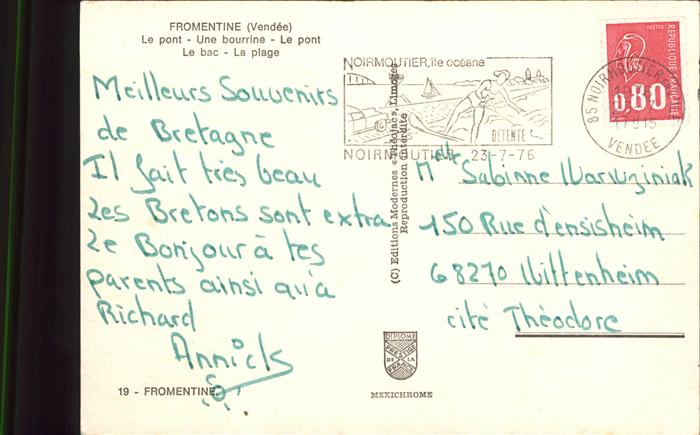 FROMENTINE (Vendée)
Le pont - Une bourrine - Le pont
Le bac - La plage
Meilleurs Souvenirs
de Bretagne
Il fait très beau
Les Bretons sont extra
Le Bonjour à tes
parents ainsi qu'à
Richard
Annick
19 - FROMENTINE
NOIRMOUTIER, île océane
DETENTE
NOIRMOUTIER 23-7-76
85 NOIRMOUTIER
VENDEE
REPUBLIQUE FRANÇAISE
POSTES
0,80
(C) Editions Modernes « Théojac », Limoges
Reproduction interdite
Melle Sabinne Warwziniak
150 Rue d'ensisheim
68270 Wittenheim
cité Théodore
DIPLOME
PRESTIGE
DE LA
FRANCE
MEXICHROME